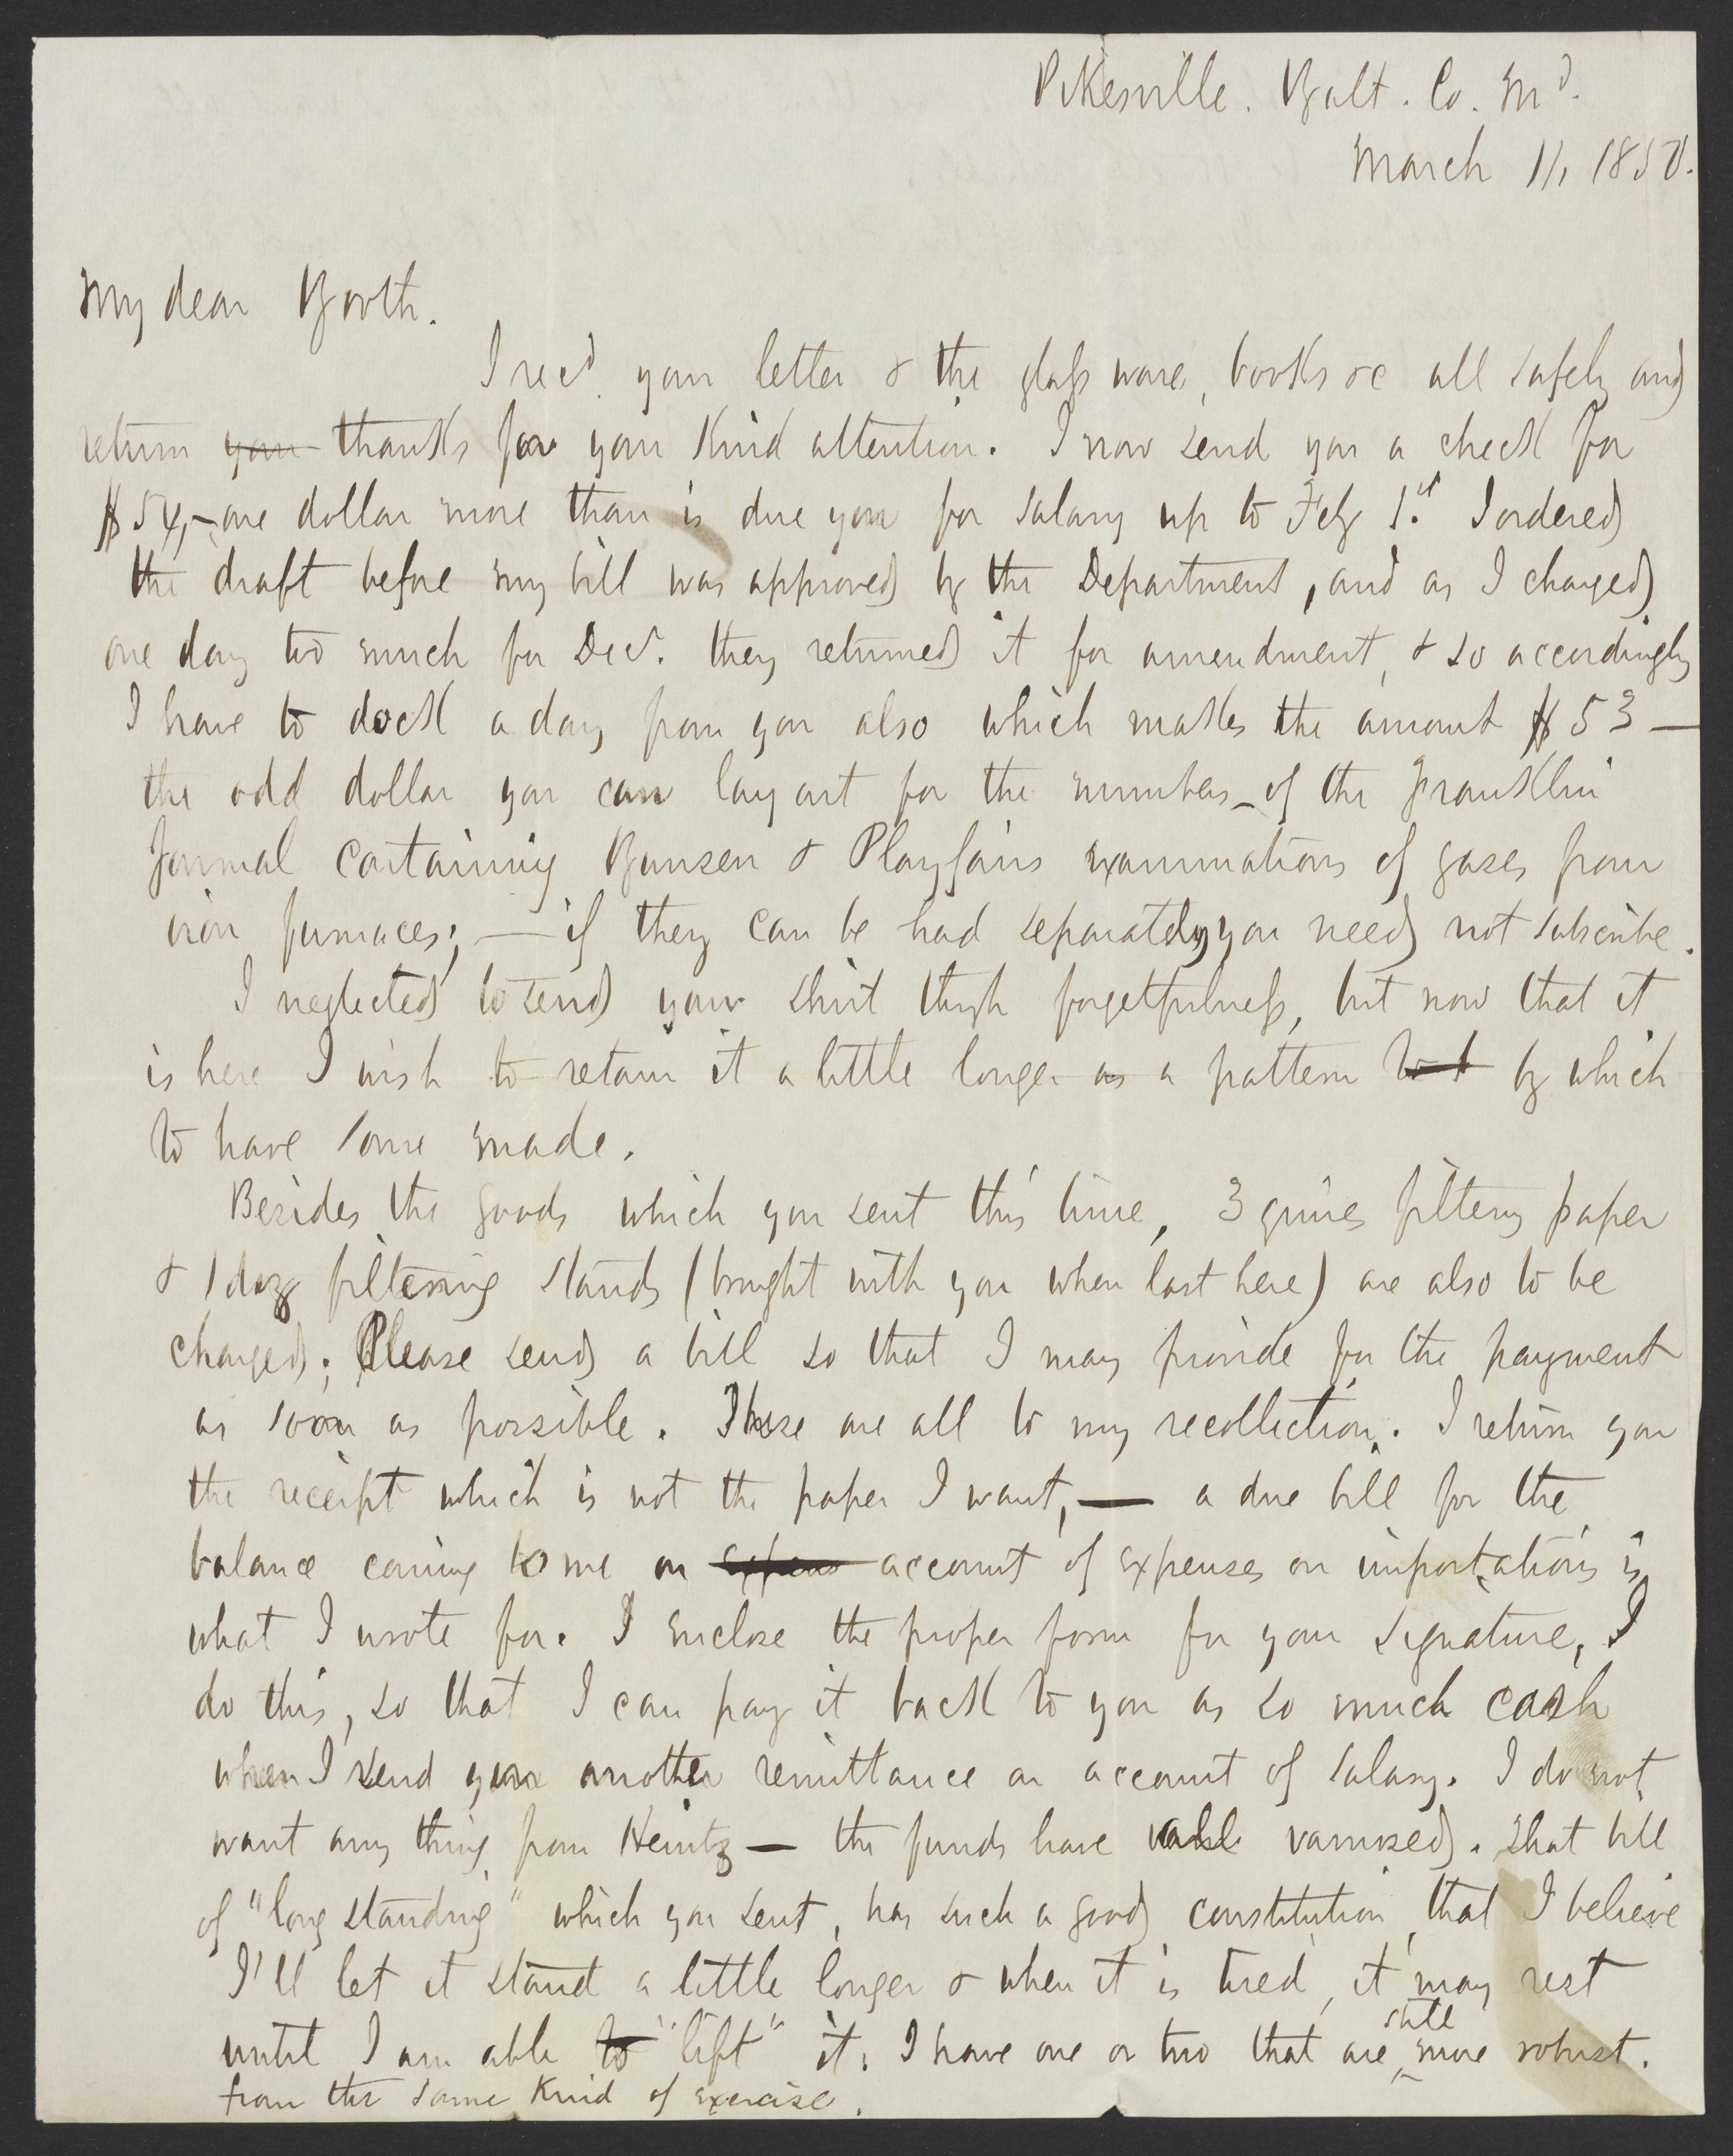 Pikesville. Balt. Co. Md.
March 11, 1850.
My dear Booth.
I recd. your letter & the glass ware, books &c all safely and
return you thanks for your kind attention. I now send you a check for
$54,— one dollar more than is due you for salary up to Feby 1st. I ordered
the draft before my bill was approved by the Department, and as I charged
one day too much for Decr. they returned it for amendment, & so accordingly
I have to dock a day from you also which makes the amount $53—
the odd dollar you can lay out for the numbers of the Franklin
Journal containing Bunsen & Playfairs examinations of gases from
iron furnaces; — if they can be had separately, you need not subscribe.
I neglected to send your shirt thrgh forgetfulness, but now that it
is here I wish to retain it a little longer as a pattern by which
to have some made.
Besides the goods which you sent this time, 3 quires filterg paper
& 1 doz filtering stands (brought with you when last here) are also to be
charged; Please send a bill so that I may provide for the payment
as soon as possible. These are all to my recollection. I return you
the receipt which is not the paper I want, — a due bill for the
balance coming to me on expens account of expenses on importations is
what I wrote for. I enclose the proper form for your signature, I
do this, so that I can pay it back to you as so much cash
when I send you another remittance on account of salary. I do not
want any thing from Heintz — the funds have all vamosed. That bill
of "long standing" which you sent, has such a good constitution, that I believe
I'll let it stand a little longer & when it is tired, it may rest
until I am able to "lift" it. I have one or two that are still more robust.
from the same kind of exercise.